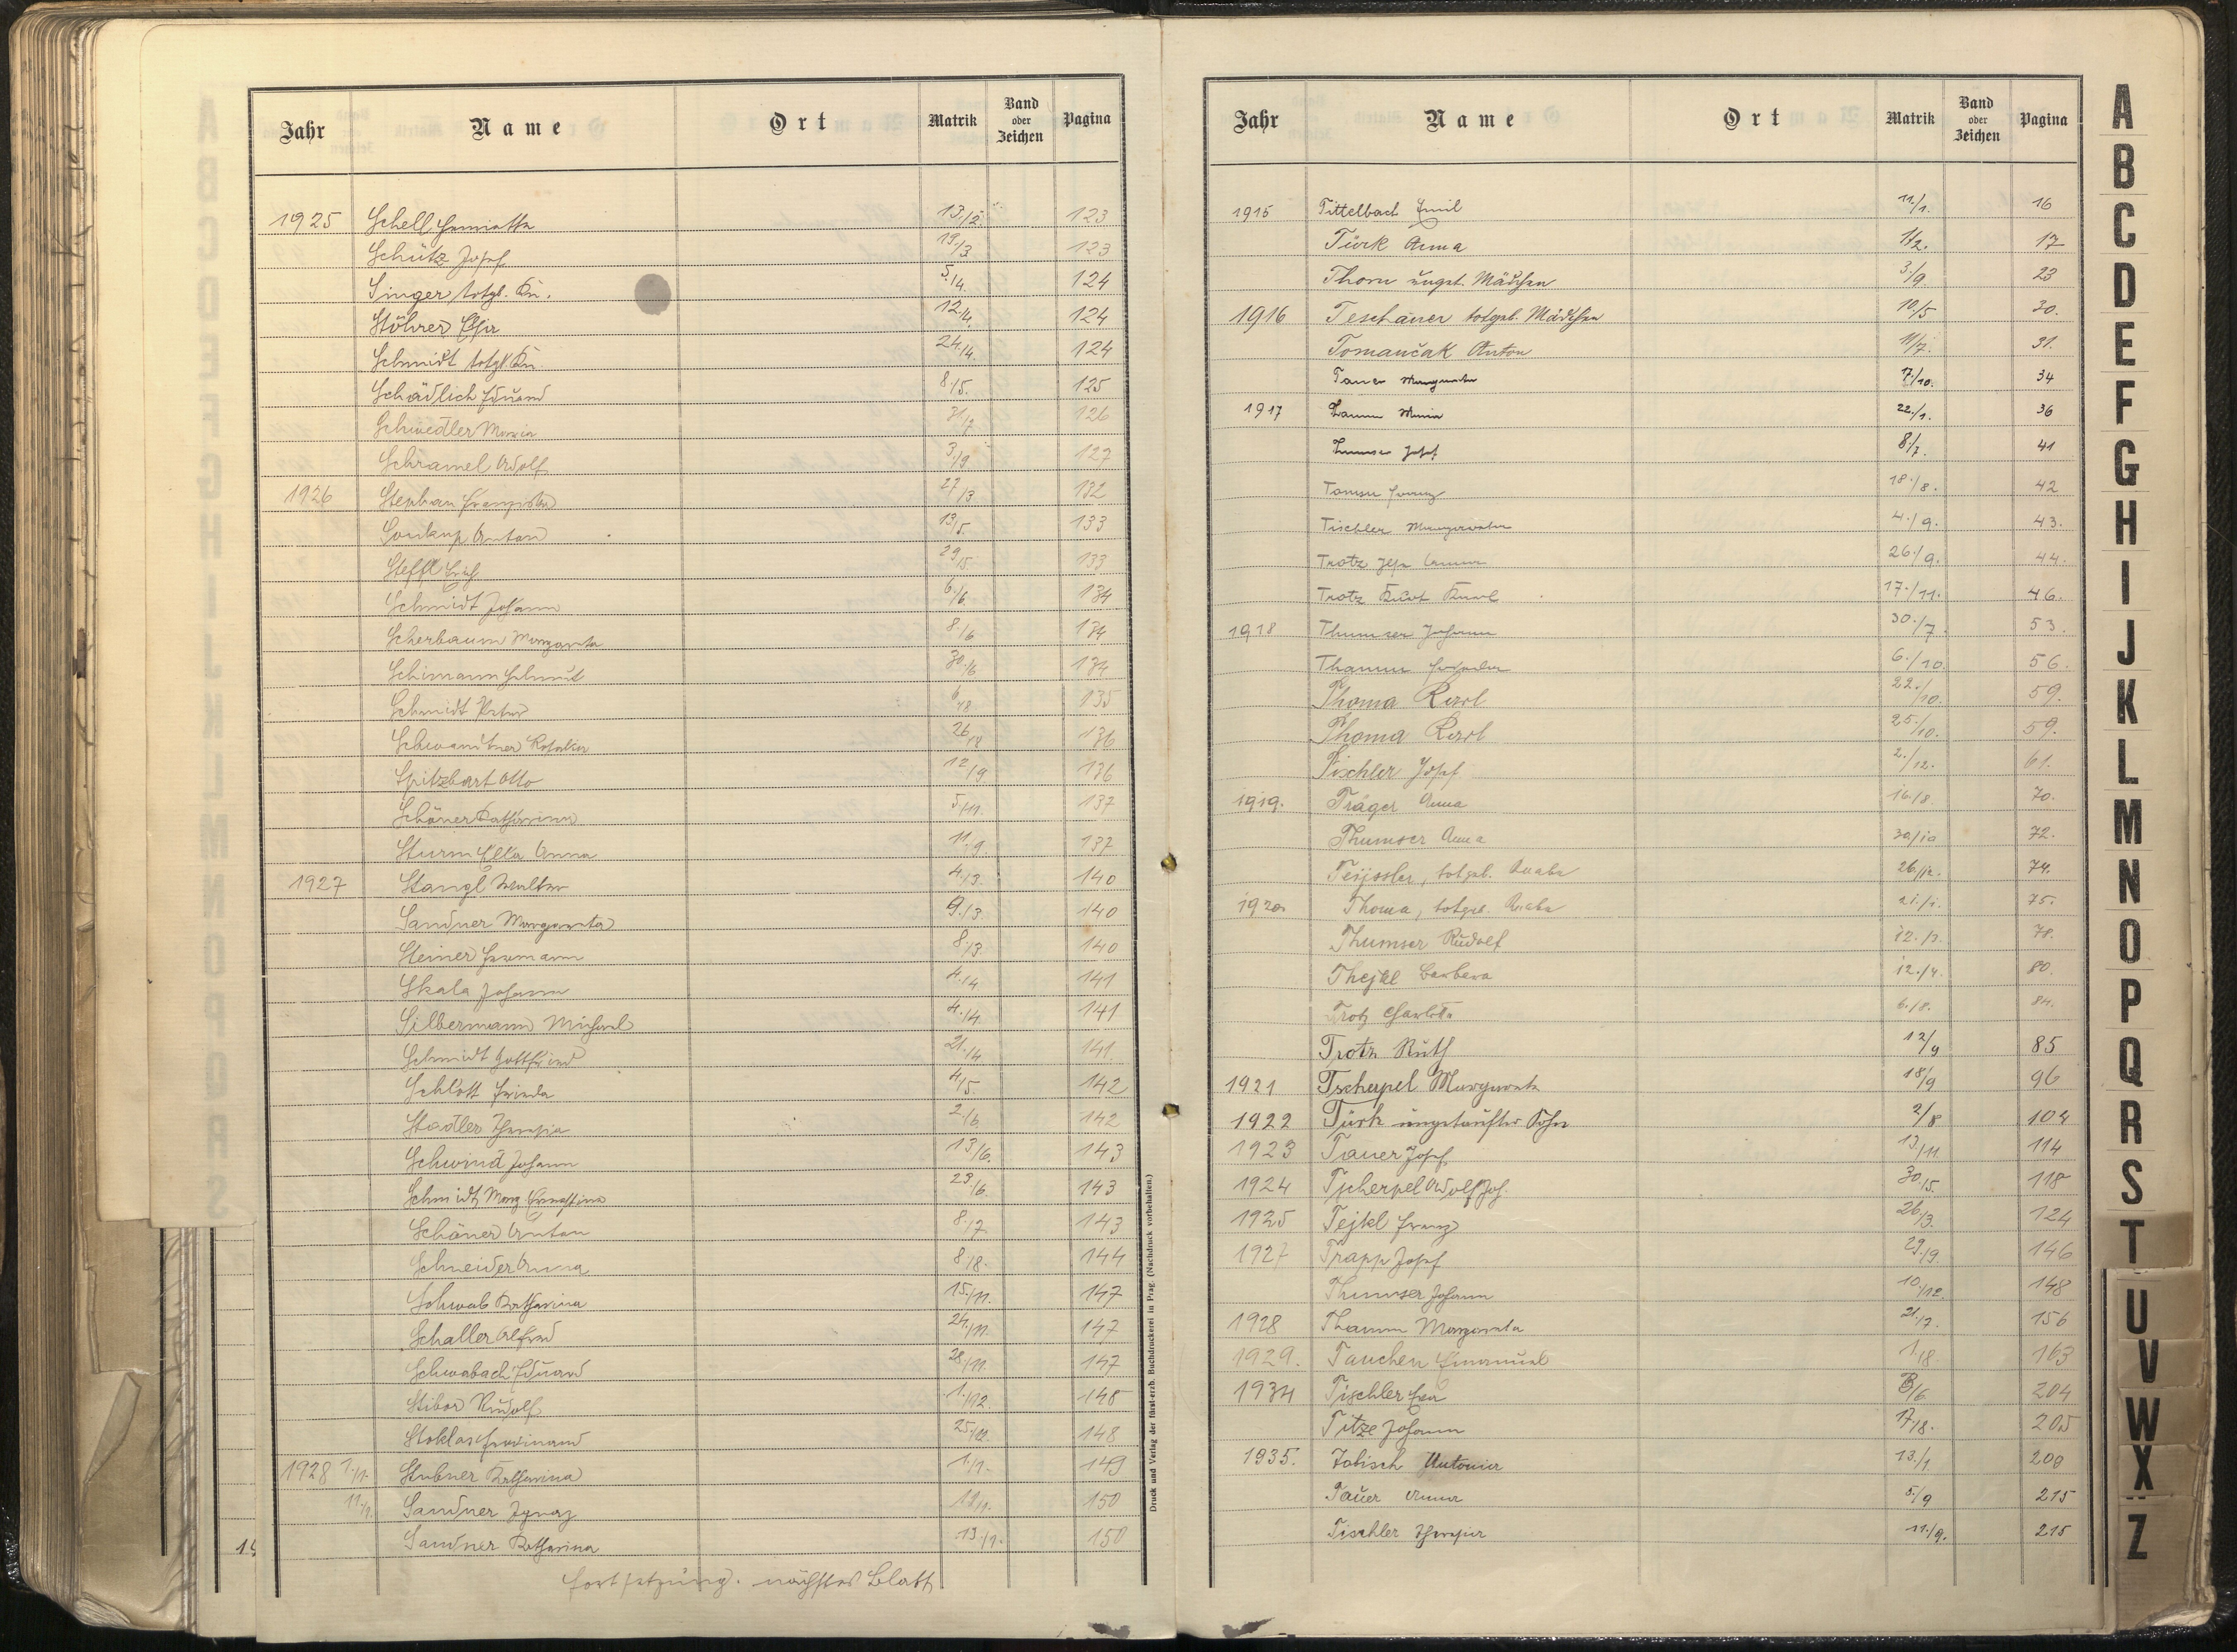 Jahr Name Ort Matrik Band oder Zeichen Pagina
1925 Schell Henriette 13./2. 123
Schütz Josef 19./3. 123
Singer totgb. Kn. 5./4. 124
Stöhrer 12./4. 124
Schmidt totgb. Kn. 24./4. 124
Schädlich Eduard 8./5. 125
Schwedler Maria 31/7 126
Schramel Adolf 3./9. 127
1926 Stephan Franziska 27/3. 132
Soukup Anton 13/5. 133
Steffl Erich 29/5. 133
Schmidt Johann 6./6. 134
Scherbaum Margareta 8./6 134
Schimann Helmut 30./6 134
Schmidt Peter 6./8 135
Schwandtner Rosalia 26/8 136
Spitzbart Otto 12/9 136
Schöner Katharina 5./11. 137
Sturm Ella Anna 11./9. 137
1927 Stangl Walter 4./3. 140
Sandner Margareta 9./3 140
Steiner Hermann 8./3. 140
Skala Johann 4./4 141
Silbermann Michael 4./4. 141
Schmidt Gottfried 21./4. 141.
Schlott Frieda 4/5. 142
Stadler Theresia 2./6 142
Schwind Johann 13/6. 143
Schmidt Marg Ernestine 23./6. 143
Schöner Anton 8./7. 143
Schneider Anna 8./8. 144
Schwab Katharina 15./11. 147
Schaller Alfred 24./11. 147
Schwabach Eduard 28./11. 147
Stibor Rudolf 1./12. 148
Stoklas Ferdinand 25/12. 148
1928 1./1. Stubner Katharina 1./1. 149
11./1. Sandner Ignaz 11/1. 150
Sandner Katharina 13./1. 150
Fortsetzung nächstes Blatt
Druck und Verlag der fürst-erzb. Buchdruckerei in Prag. (Nachdruck vorbehalten.)
Jahr Name Ort Matrik Band oder Zeichen Pagina
1915 Tittelbach Emil 11/1. 16
Türk Anna 1/2. 17
Thorn ungt. Mädchen 3./9. 23
1916 Teschauer totgeb. Mädchen 10./5 30.
Tomančak Anton 11/7. 31.
Tauer Margareta 7/10. 34
1917 Thamm Maria 22./1. 36
Thumser Josef 8./7. 41
Tomsu Franz 18./8. 42
Tischler Margareta 4./9. 43.
Trotz Anna 26./9. 44.
Trotz Kurt Karl 17./11. 46.
1918 Thumser Johann 30./7. 53.
Thamm 6./10. 56.
Thoma Karl 22./10. 59.
Thoma Karl 25./10. 59.
Tischler Josef 2./12. 61.
1919. Träger Anna 16./8. 70.
Thumser Anna 30/10 72.
totgeb. Knabe 26./12. 74.
1920 Thoma, totgeb. Knabe 21./1. 75.
Thumser Rudolf 12./3. 78.
Thejkl Barbara 12./4. 80.
Trotz Charlotte 6./8. 84.
Trotz Ruth 12/9 85
1921 Tscherpel Margareta 18/9 96
1922 Türk ungetaufter Sohn 2/8 104
1923 Tauer Josef 13/11 114
1924 Tscherpel Adolf Jos. 30./5. 118
1925 Tejkl Franz 26/3. 124
1927 Trapp Josef 29./9. 146
Thumser Johann 10./12. 148
1928 Thamm Margareta 21./7. 156
1929. Tauchen Emanuel 1./8. 163
1934 Tischler Eva 3/6 204
Titze Johann 17/8. 205
1935. Tobisch Antonia 13./1. 209
Tauer Anna 5./9 215
Tischler Theresia 11./9. 215
A
B
C
D
E
F
G
H
I
J
K
L
M
N
O
P
Q
R
S
T
U
V
W
X
Z